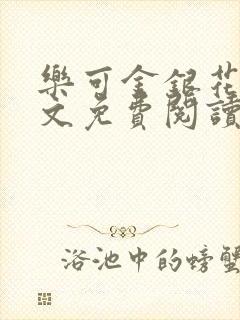 樂可金銀花
文免費閱讀
浴池中的螃蟹